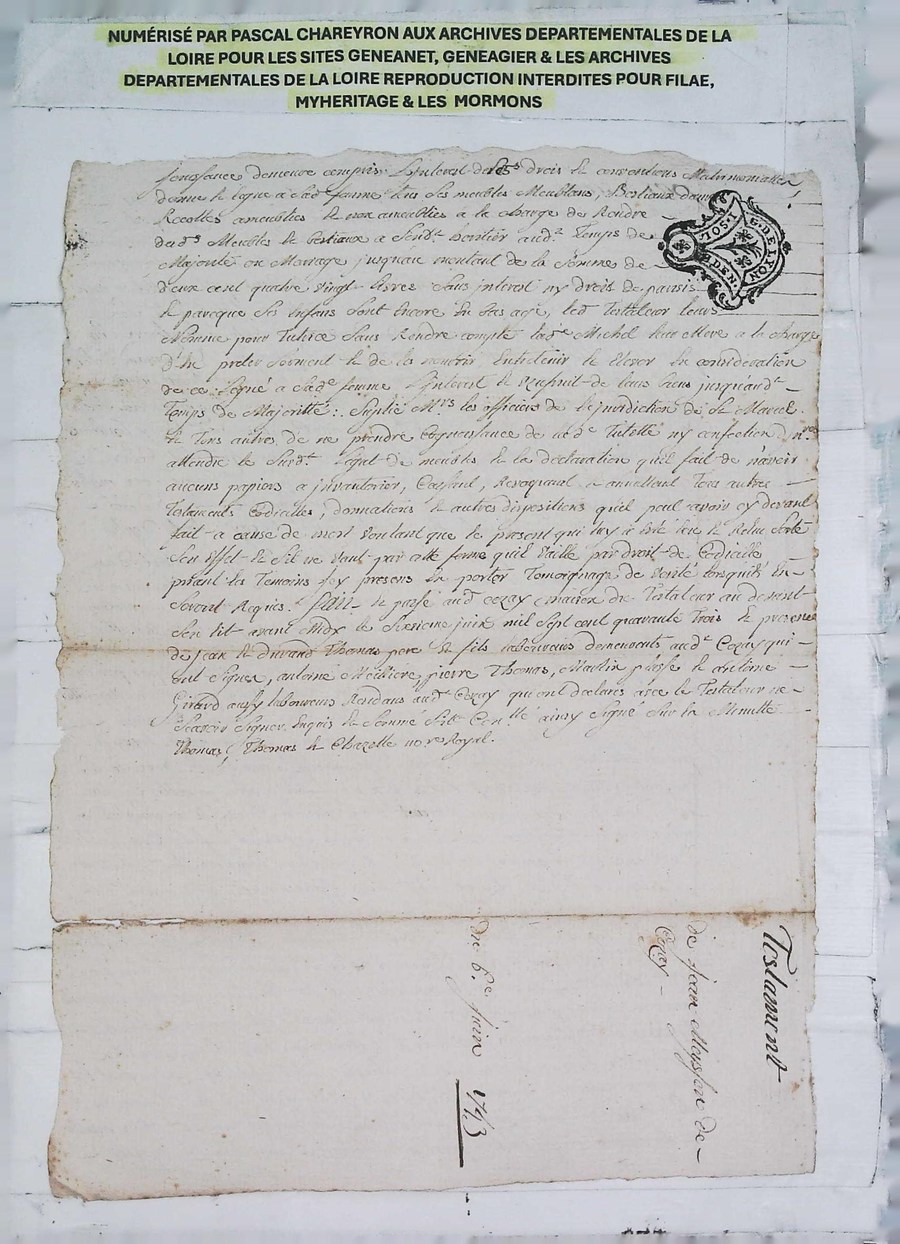 NUMÉRISÉ PAR PASCAL CHAREYRON AUX ARCHIVES DEPARTEMENTALES DE LA
LOIRE POUR LES SITES GENEANET, GENEAGIER & LES ARCHIVES
DEPARTEMENTALES DE LA LOIRE REPRODUCTION INTERDITES POUR FILAE,
MYHERITAGE & LES MORMONS
jouissance demeure compris L'interest de droits & conventions Matrimonialles
donne & legue a sad. femme tous ses meubles Meublans, Bestiaux
Recoltes ameublies & non ameublies a la charge de Rendre
Meubles & bestiaux a Sond.t heritier aud.t Temps de
Majorité ou Mariage jusquau montant de la Somme de
deux cent quatre vingt Livres Sans interest ny droit de
& parceque Ses Enfans sont Encore En bas age, led. Testateur leurs
Nomme pour Tutrice Sans Rendre compte lad.e Michel leur Mere a la charge
D'En preter serment & de les nourrir Entretenir & Elever En consideration
de ce Legue a Sad.e femme L'interest & Usufruit de leurs biens jusqu'aud.t
Temps de Majoritté: Suplie M.rs les officiers de la jurisdiction de St Marcel
& Tous autres de ne prendre Cognoissance de lad.e Tutelle ny confection
attendu le Susd.t Legat de meubles & la declaration quil fait de n'avoir
aucuns papiers a inventorier, Cassant, Revoquant & annullant Tous autres
Testaments Codicilles, donnations & autres dispositions quil peut avoir cy devant
fait a cause de mort voulant que le present qui luy a été leu & Relue sorte
Son Effet & Sil ne vaut par cette forme quil Vaille par droit de Codicille
priant les Temoins Icy presens En porter Temoignage de Verité lorsquils En
Seront Requis. fait & passé aud. Cezay maison du Testateur au devant
Son lit avant Midy le Sixieme juin mil Sept cent quarante Trois En presence
de Jean & Durand Thomas pere & fils laboureurs demeurants aud.t Cezay qui
ont Signes, antoine Meilliere, pierre Thomas, Martin & antoine
Girard aussy laboureurs Residans aud.t Cezay qui ont declarés avec le Testateur ne
Scavoir Signer Enquis & Sommé ainsy Signé Sur la Minutte
Thomas, Thomas & Chazelle no.re Royal.
G. DE LYON
Testament
de jean Meysson de
Cezay
du 6.e juin 1743